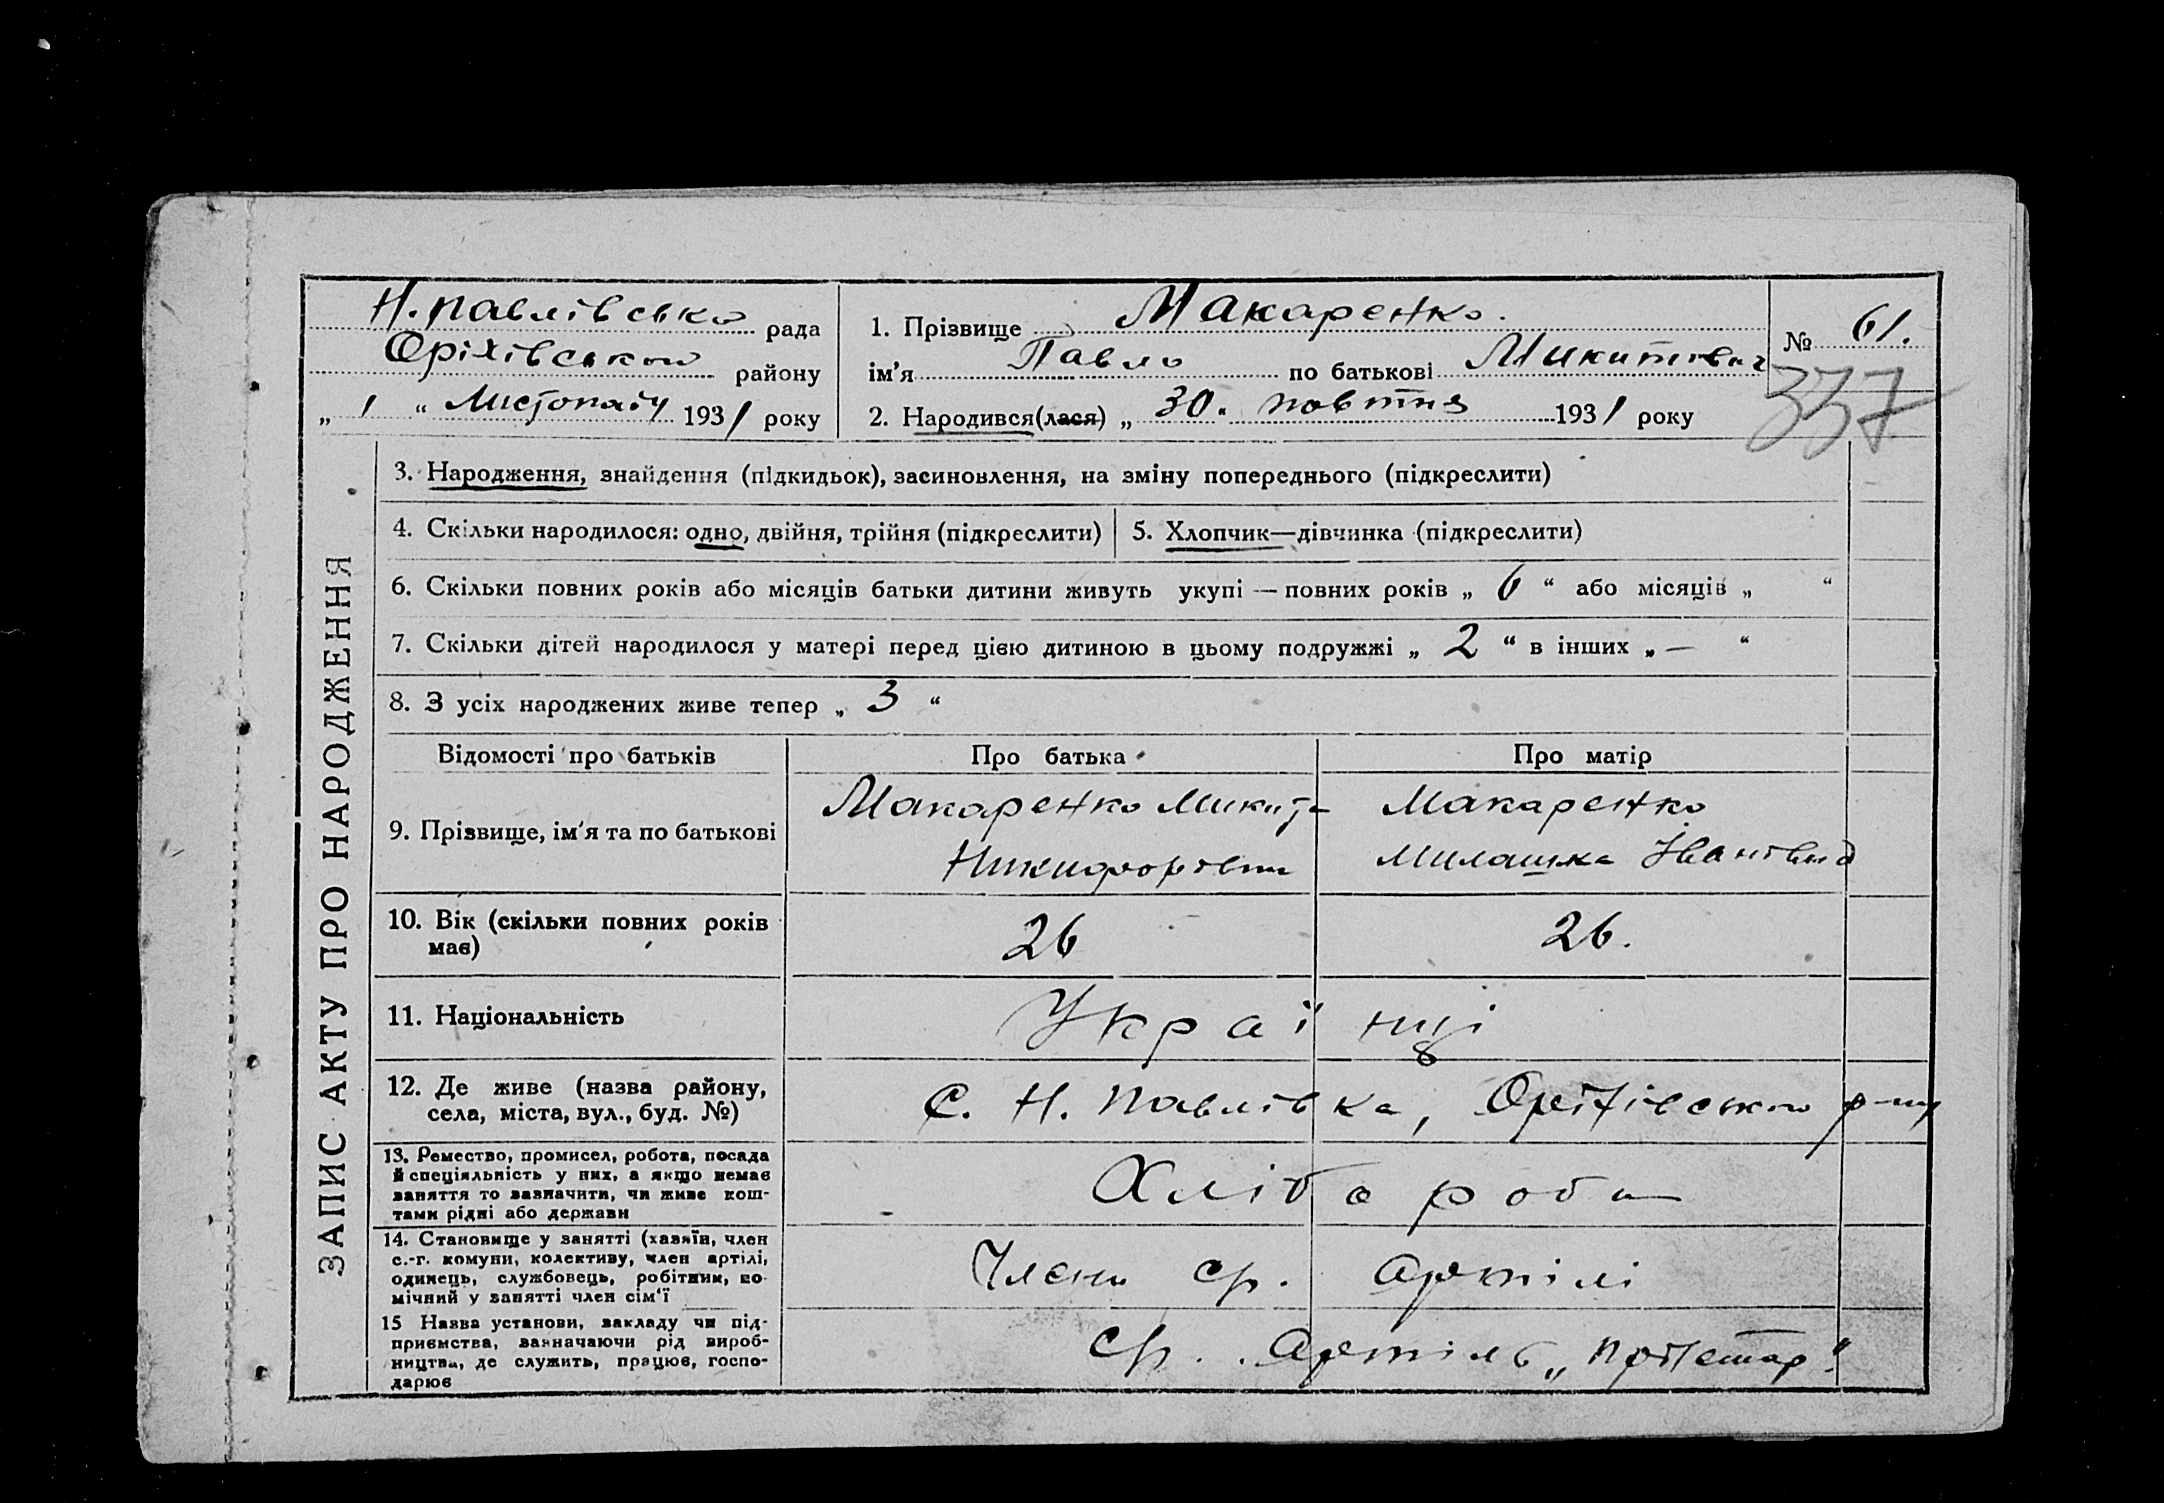 Н. Павлівсько рада
Оріхівського району
„ 1 “ Листопаду 1931 року
1. Прізвище Макаренко.
ім'я Павло по батькові Микитович
2. Народився(лася) „ 30. жовтня 1931 року
№ 61.
337
ЗАПИС АКТУ ПРО НАРОДЖЕННЯ
3. Народження, знайдення (підкидьок), засиновлення, на зміну попереднього (підкреслити)
4. Скільки народилося: одно, двійня, трійня (підкреслити)
5. Хлопчик—дівчинка (підкреслити)
6. Скільки повних років або місяців батьки дитини живуть укупі — повних років „ 6 “ або місяців „ “
7. Скільки дітей народилося у матері перед цією дитиною в цьому подружжі „ 2 “ в інших „ — “
8. З усіх народжених живе тепер „ 3 “
Відомості про батьків
Про батька
Про матір
9. Прізвище, ім'я та по батькові
Макаренко Микита
Никифорович
Макаренко
Милашка Івановна
10. Вік (скільки повних років
має)
26
26.
11. Національність
Українці
12. Де живе (назва району,
села, міста, вул., буд. №)
С. Н. Павлівка, Оріхівського р-ну
13. Ремество, промисел, робота, посада
й спеціяльність у них, а якщо немає
заняття то зазначити, чи живе кош-
тами рідні або держави
Хлібороби
14. Становище у занятті (хазяїн, член
с.-г. комуни, колективу, член артілі,
одинець, службовець, робітник, по-
мічний у занятті член сім'ї
Члени ср. артілі
15 Назва установи, закладу чи під-
приємства, зазначаючи рід вироб-
ництва, де служить, працює, госпо-
дарює
Ср. Артіль „Пролетар“